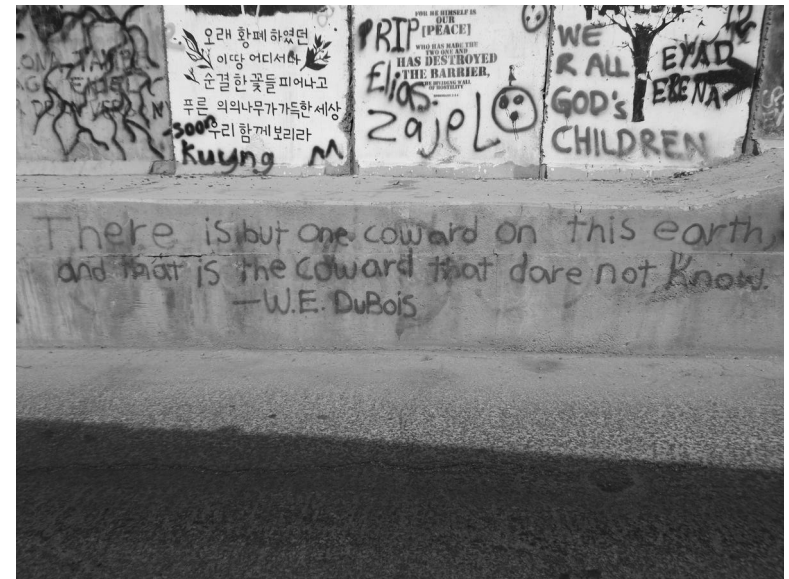 오래 황폐하였던
이땅 어디서나
순결한 꽃들 피어나고
푸른 의의나무가 가득한 세상
우리 함께 보리라
Kuyng
M
RIP
Elias
Zajel
FOR HE HIMSELF IS
OUR
[PEACE]
WHO HAS MADE THE
TWO ONE AND
HAS DESTROYED
THE BARRIER,
THE DIVIDING WALL
OF HOSTILITY
WE
R ALL
GOD'S
CHILDREN
EYAD
There is but one coward on this earth,
and that is the coward that dare not know.
—W.E. DuBois